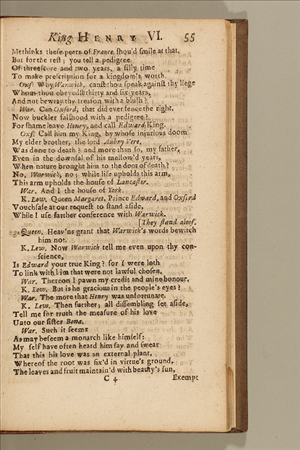 King HENRY VI. 55
Methinks these peers of France shou'd smile at that.
But for the rest; you tell a pedigree
Of threescore and two years, a silly time
To make prescription for a kingdom's worth.
Oxf. Why Warwick, canst thou speak against thy liege
Whom thou obeyedst thirty and six years,
And not bewray thy treason with a blush?
War. Can Oxford, that did ever fence the right,
Now buckler falshood with a pedigree?
For shame leave Henry, and call Edward King.
Oxf. Call him my King, by whose injurious doom
My elder brother, the lord Aubry Vere,
Was done to death? and more than so, my father,
Even in the downfal of his mellow'd years,
When nature brought him to the door of death?
No, Warwick, no; while life upholds this arm,
This arm upholds the house of Lancaster.
War. And I the house of York.
K. Lew. Queen Margaret, Prince Edward, and Oxford
Vouchsafe at our request to stand aside,
While I use farther conference with Warwick.
[They stand aloof.
Queen. Heav'ns grant that Warwick's words bewitch
him not.
K. Lew. Now Warwick tell me even upon thy con-
science,
Is Edward your true King? for I were loth
To link with him that were not lawful chosen.
War. Thereon I pawn my credit and mine honour.
K. Lew. But is he gracious in the people's eyes?
War. The more that Henry was unfortunate.
K. Lew. Then further; all dissembling set aside,
Tell me for truth the measure of his love
Unto our sister Bona.
War. Such it seems
As may beseem a monarch like himself;
My self have often heard him say and swear
That this his love was an external plant,
Whereof the root was fix'd in virtue's ground,
The leaves and fruit maintain'd with beauty's sun,
C 4 Exempt